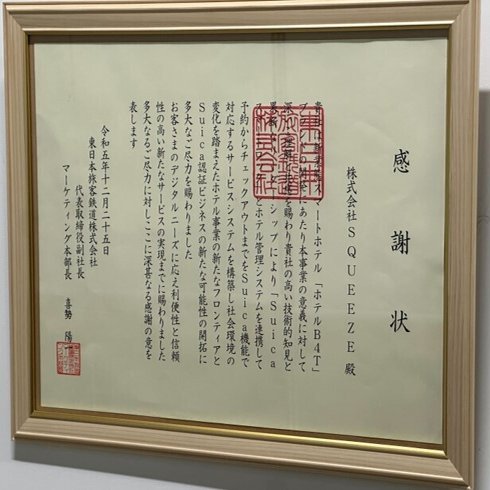 感謝状
株式会社SQUEEZE 殿
ートホテル「ホテルB4T」
にあたり本事業の意義に対して
を賜り貴社の高い技術的知見と
シップにより「Suica
とホテル管理システムを連携して
予約からチェックアウトまでをSuica機能で
対応するサービスシステムを構築し社会環境の
変化を踏まえたホテル事業の新たなフロンティアと
Suica認証ビジネスの新たな可能性の開拓に
多大なご尽力を賜わりました
お客さまのデジタルニーズに応え利便性と信頼
性の高い新たなサービスの実現までに賜わりました
多大なるご尽力に対しここに深甚なる感謝の意を
表します
令和五年十二月二十五日
東日本旅客鉄道株式会社
代表取締役副社長
マーケティング本部長 喜勢 陽一